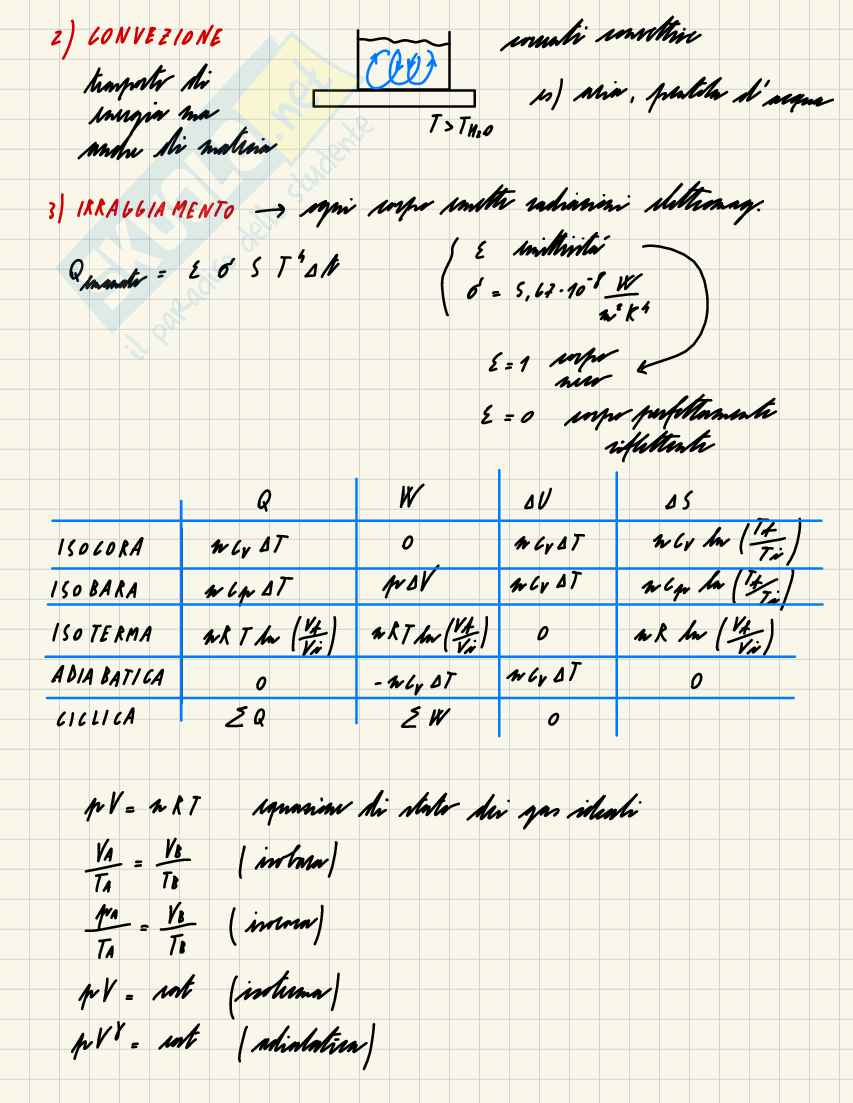 2) CONVEZIONE
trasporto di
energia ma
anche di materia
T > T_{H₂O}
correnti convettive
es) aria, pentola d'acqua
3) IRRAGGIAMENTO → ogni corpo emette radiazioni elettromag.
Q_{emanato} = ε σ S T⁴ Δt
ε emittività
σ = 5,67 · 10⁻⁸ W/m²K⁴
ε = 1 corpo
nero
ε = 0 corpo perfettamente
riflettente
Q W ΔU ΔS
ISOCORA n c_v ΔT 0 n c_v ΔT n c_v ln (T_f/T_i)
ISOBARA n c_p ΔT p ΔV n c_v ΔT n c_p ln (T_f/T_i)
ISOTERMA n R T ln (V_f/V_i) n R T ln (V_f/V_i) 0 n R ln (V_f/V_i)
ADIABATICA 0 - n c_v ΔT n c_v ΔT 0
CICLICA ΣQ ΣW 0
pV = nRT equazione di stato dei gas ideali
V_A/T_A = V_B/T_B (isobara)
p_A/T_A = V_B/T_B (isocora)
pV = cost (isoterma)
pV^γ = cost (adiabatica)
SKUOLA.net
il paradiso dello studente